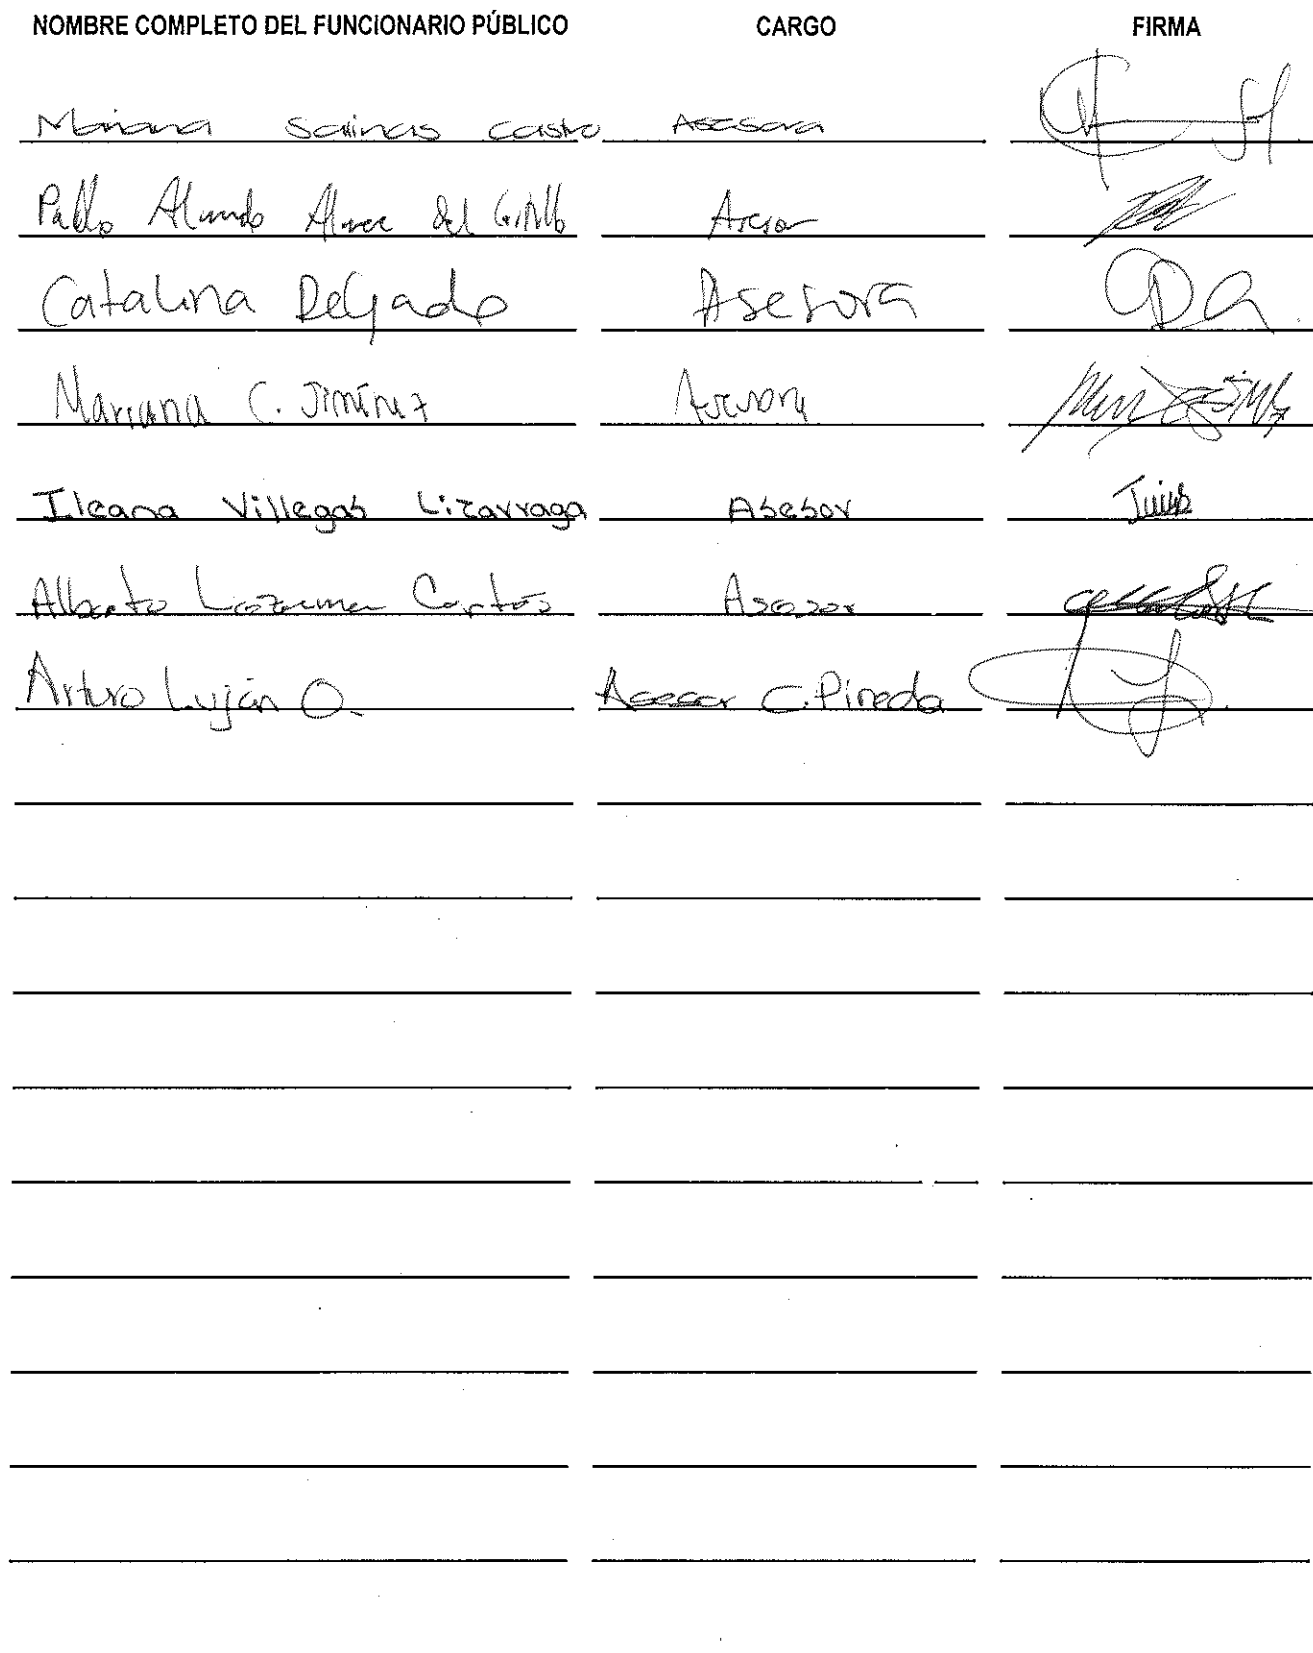 NOMBRE COMPLETO DEL FUNCIONARIO PÚBLICO CARGO FIRMA
Mariana Salinas Castro Asesora
Pablo del Asesor
Catalina Delgado Asesora
Mariana C. Jiménez Asesora
Ileana Villegas Lizarraga Asesor
Alberto Cortés Asesor
Arturo Luján O. Asesor C. Pineda